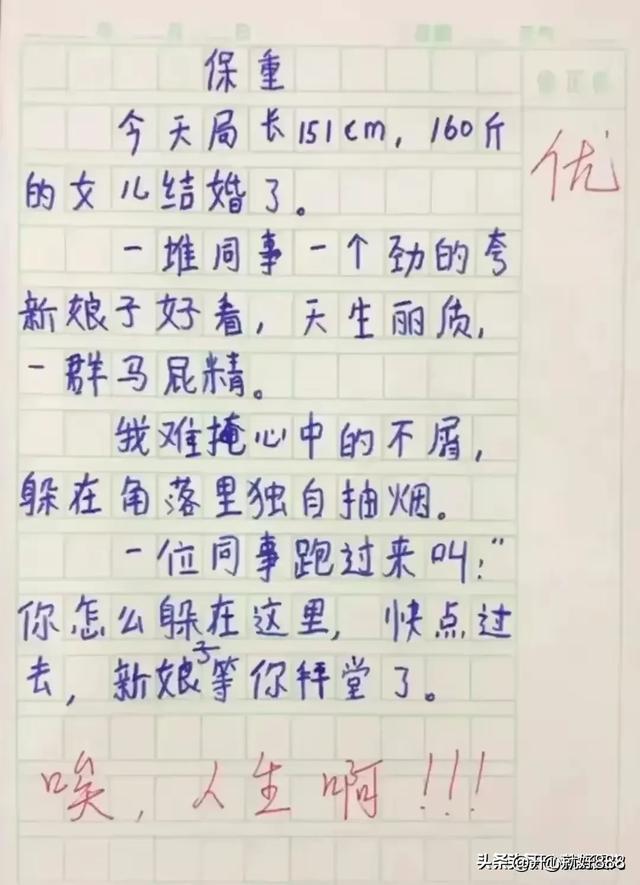 保重
优
今天局长151cm，160斤
的女儿结婚了。
一堆同事一个劲的夸
新娘子好看，天生丽质，
一群马屁精。
我难掩心中的不屑，
躲在角落里独自抽烟。
一位同事跑过来叫：“
你怎么躲在这里，快点过
去，新娘子等你拜堂了。
唉，人生啊！！！